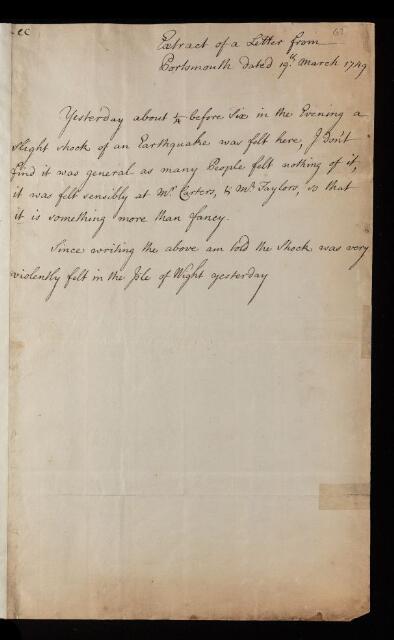 Extract of a Letter from
Portsmouth dated 19th March 1749
Yesterday about 1/4 before Six in the Evening a
slight shock of an Earthquake was felt here, I don't
find it was general as many People felt nothing of it,
it was felt sensibly at Mr. Carters, & Mr. Taylors, so that
it is something more than fancy.
Since writing the above am told the Shock was very
violently felt in the Isle of Wight yesterday